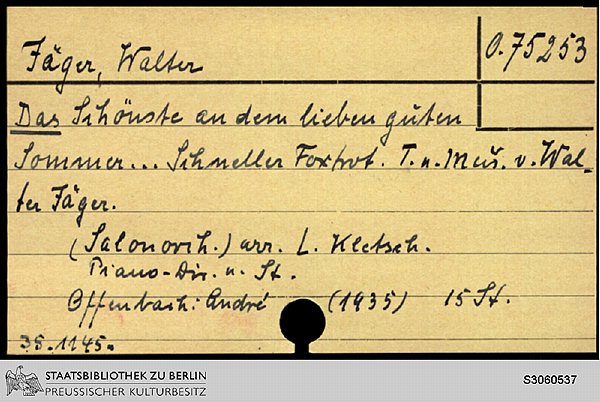 Jäger, Walter
O.75253
Das Schönste an dem lieben guten
Sommer... Schneller Foxtrot. T. u. Mus. v. Wal-
ter Jäger.
(Salonorch.) arr. L. Kletsch.
Piano-Dir. u. St.
Offenbach: André (1935) 15 St.
38.1145.
STAATSBIBLIOTHEK ZU BERLIN
PREUSSISCHER KULTURBESITZ
S3060537